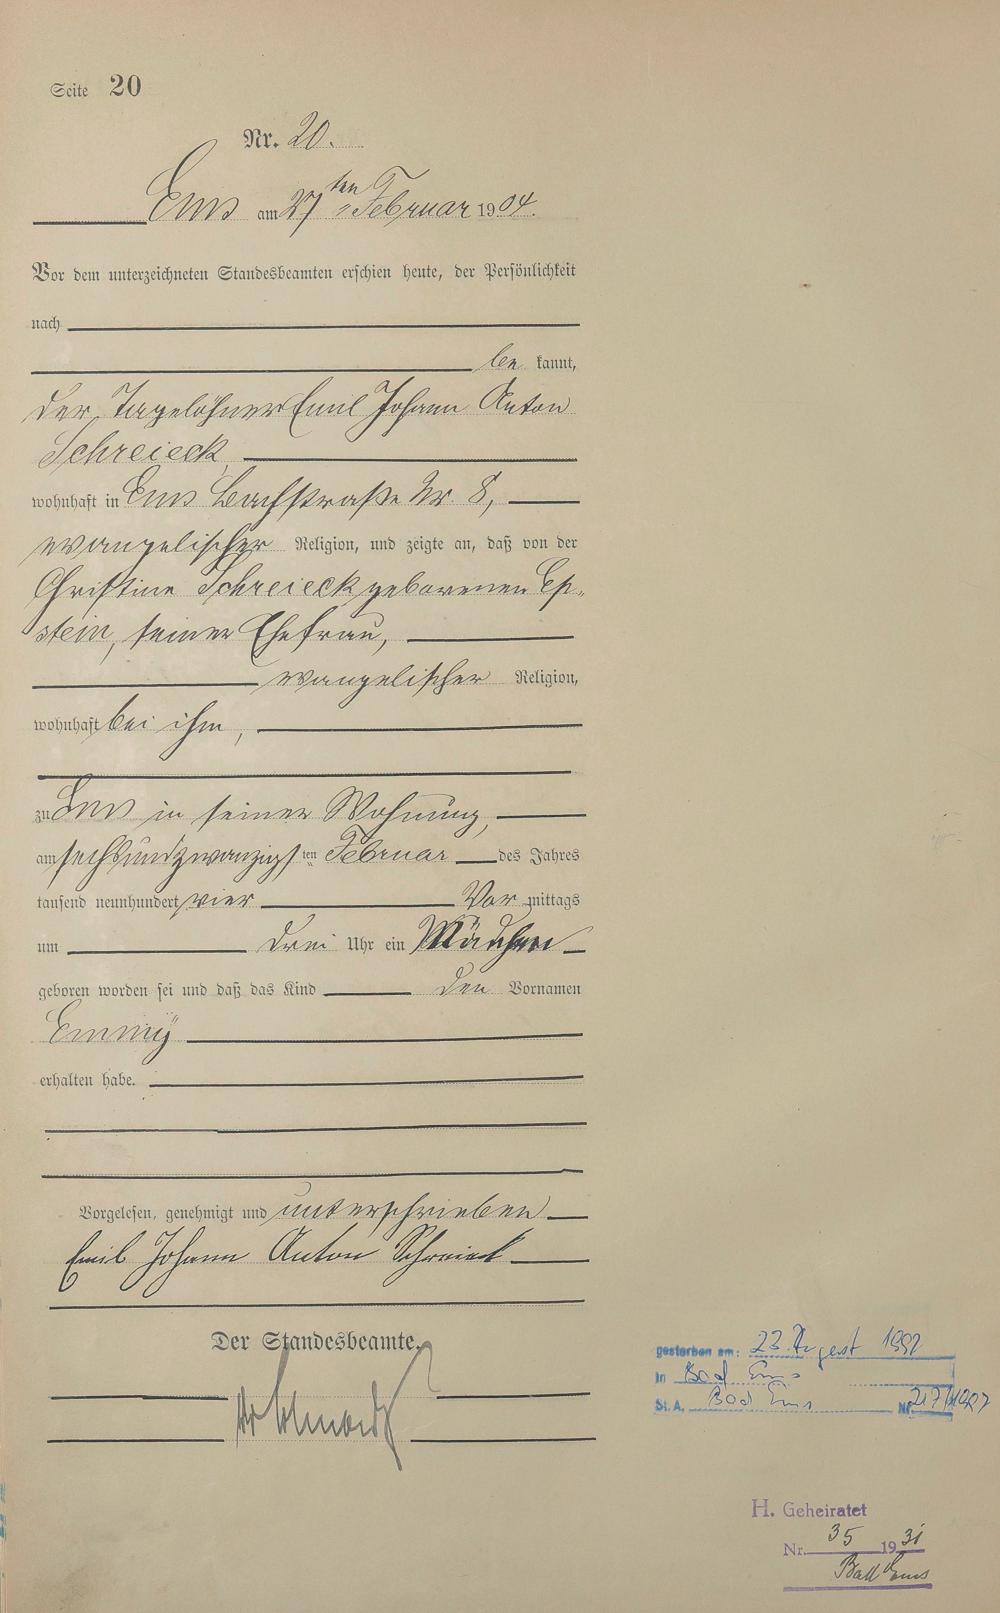 Seite 20
Nr. 20.
Ems am 27ten Februar 1904.
Vor dem unterzeichneten Standesbeamten erschien heute, der Persönlichkeit
nach
be kannt,
der Tagelöhner Emil Johann Anton
Schreieck,
wohnhaft in Ems Bachstraße Nr. 8,
evangelischer Religion, und zeigte an, daß von der
Christine Schreieck geborenen Ep-
stein, seiner Ehefrau,
evangelischer Religion,
wohnhaft bei ihm,
zu Ems in seiner Wohnung,
am sechsundzwanzigsten Februar des Jahres
tausend neunhundert vier Vor mittags
um drei Uhr ein Mädchen
geboren worden sei und daß das Kind den Vornamen
Emmy
erhalten habe.
Vorgelesen, genehmigt und unterschrieben
Emil Johann Anton Schreieck
Der Standesbeamte.
gestorben am: 23. August 1992
in Bad Ems
St.A. Bad Ems Nr. 217/1992
H. Geheiratet
Nr. 35 1931
Bad Ems